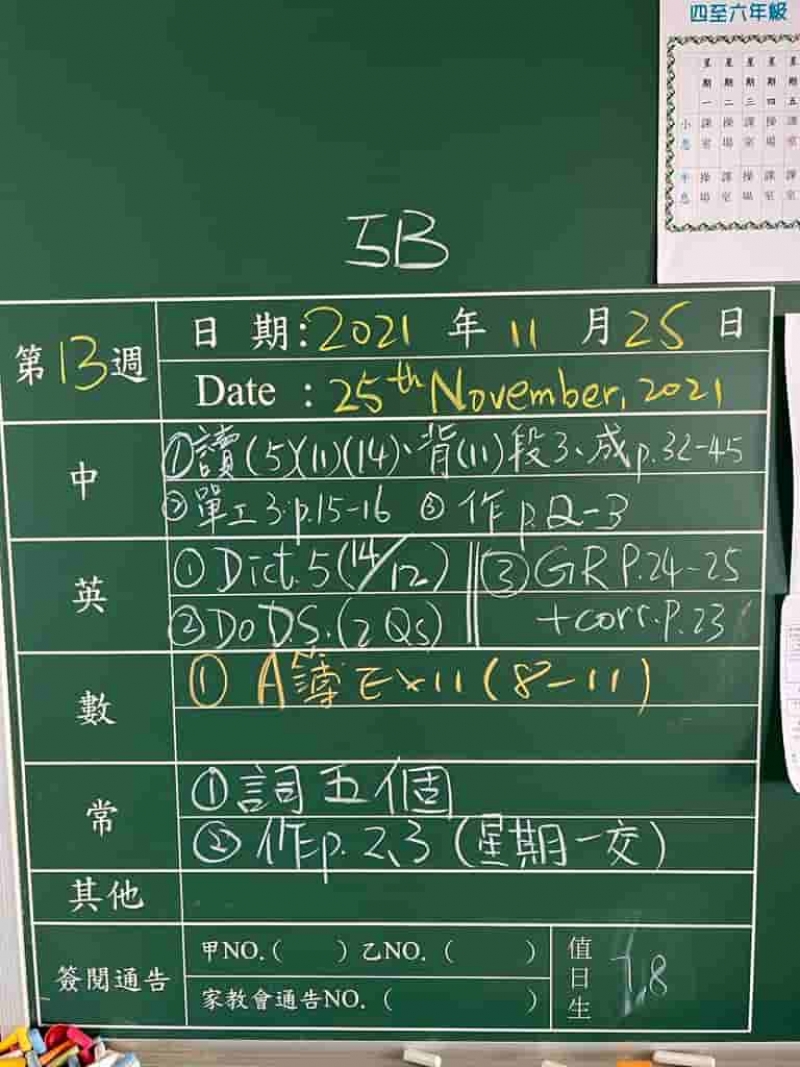 四至六年級
星期一 星期二 星期三 星期四 星期五
小息 課室 操場 課室 操場 課室
午息 操場 課室 操場 課室 課室
5B
第13週
日期:2021年11月25日
Date : 25th November, 2021
中
①讀(5)(11)(14)、背(11)段3、成p.32-45
②單工3 p.15-16 ③作p.2-3
英
①Dict.5(14/12)
②Do DS.(2 Qs)
③GR P.24-25
+corr.P.23
數
①A簿Ex11(8-11)
常
①詞五個
②作p.2、3(星期一交)
其他
簽閱通告
甲NO.( )乙NO.( )
家教會通告NO.( )
值日生
7,8